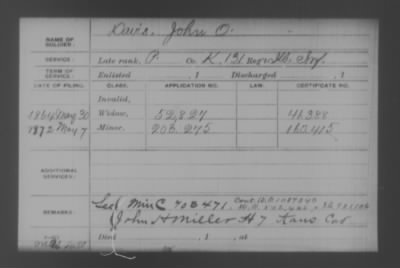 NAME OF SOLDIER: Davis, John O.
SERVICE: Late rank, P. Co. K, 131 Reg't Ills Inf.
TERM OF SERVICE: Enlisted , 1 Discharged , 1
DATE OF FILING. CLASS. APPLICATION NO. LAW. CERTIFICATE NO.
Invalid,
1864 May 30 Widow, 52,827 46388
1872 May 7 Minor, 203,275 160,415
ADDITIONAL SERVICES:
REMARKS: See Min C 703471.
John H Miller H 7 Kans Cav
Died , 1 , at